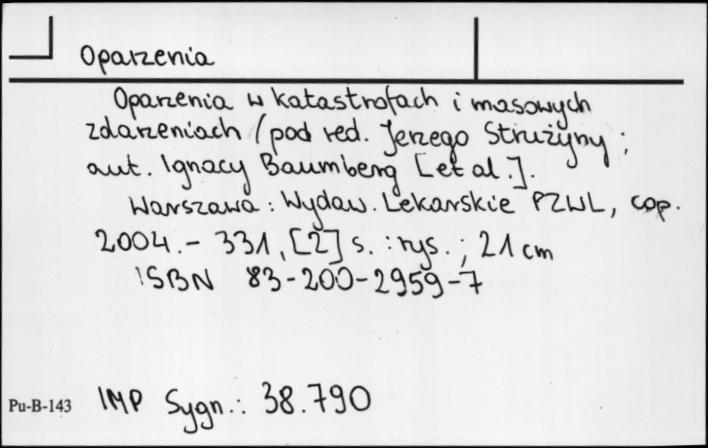 Oparzenia
Oparzenia w katastrofach i masowych
zdarzeniach / pod red. Jerzego Strużyny ;
aut. Ignacy Baumberg [et al.].
Warszawa : Wydaw. Lekarskie PZWL, cop.
2004. - 331, [2] s. : rys. ; 21 cm
ISBN 83-200-2959-7
Pu-B-143 IMP Sygn.: 38.790